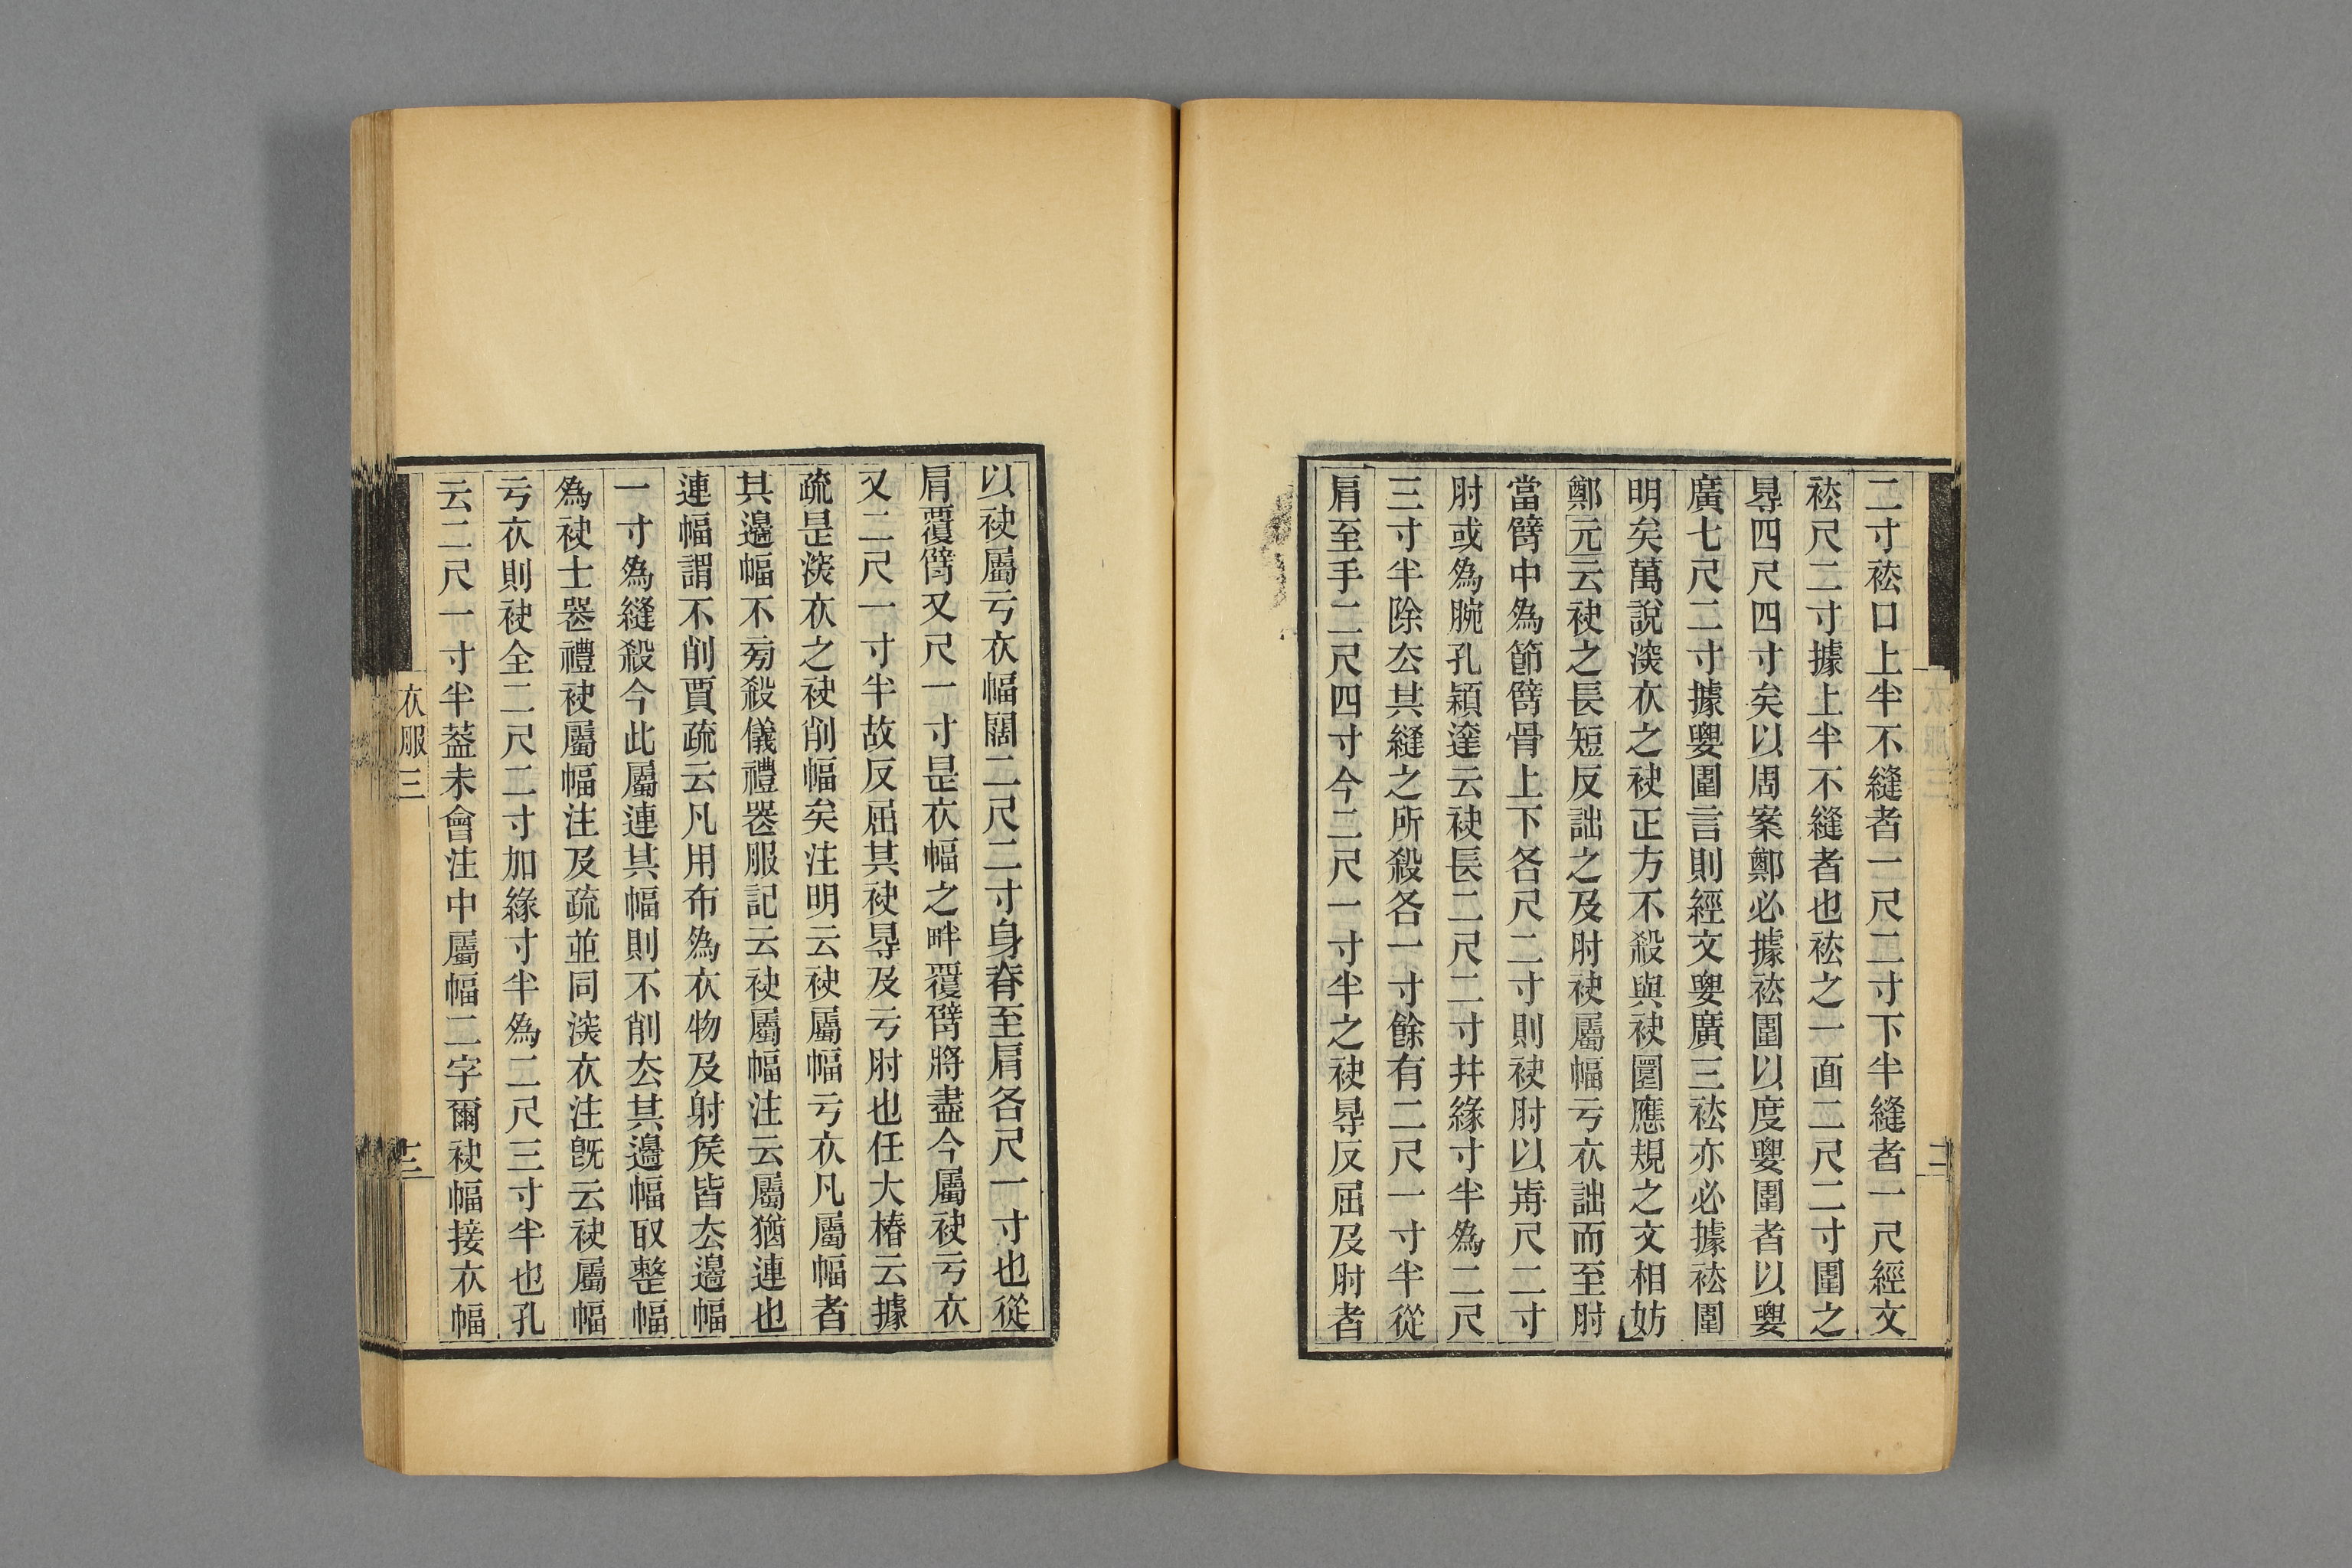 二寸袪口上半不縫者一尺二寸下半縫者一尺經文
袪尺二寸據上半不縫者也袪之一面二尺二寸圍之
㝵四尺四寸矣以周案鄭必據袪圍以度㚻圍者以㚻
廣七尺二寸據㚻圍言則經文㚻廣三袪亦必據袪圍
明矣萬說湥衣之袂正方不殺與袂圜應規之文相妨
鄭元云袂之長短反詘之及肘袂屬幅亏衣詘而至肘
當臂中為節臂骨上下各尺二寸則袂肘以歬尺二寸
肘或為腕孔穎達云袂長二尺二寸幷緣寸半為二尺
三寸半除厺其縫之所殺各一寸餘有二尺一寸半從
肩至手二尺四寸今二尺一寸半之袂㝵反屈及肘者
以袂屬亏衣幅闊二尺二寸身脊至肩各尺一寸也從
肩覆臂又尺一寸是衣幅之畔覆臂將盡今屬袂亏衣
又二尺一寸半故反屈其袂㝵及亏肘也任大椿云據
疏是湥衣之袂削幅矣注明云袂屬幅亏衣凡屬幅者
其邊幅不㫄殺儀禮喪服記云袂屬幅注云屬猶連也
連幅謂不削賈疏云凡用布為衣物及射矦皆厺邊幅
一寸為縫殺今此屬連其幅則不削厺其邊幅取整幅
為袂士喪禮袂屬幅注及疏並同湥衣注旣云袂屬幅
亏衣則袂全二尺二寸加緣寸半為二尺三寸半也孔
云二尺一寸半葢未會注中屬幅二字爾袂幅接衣幅
衣服三
三